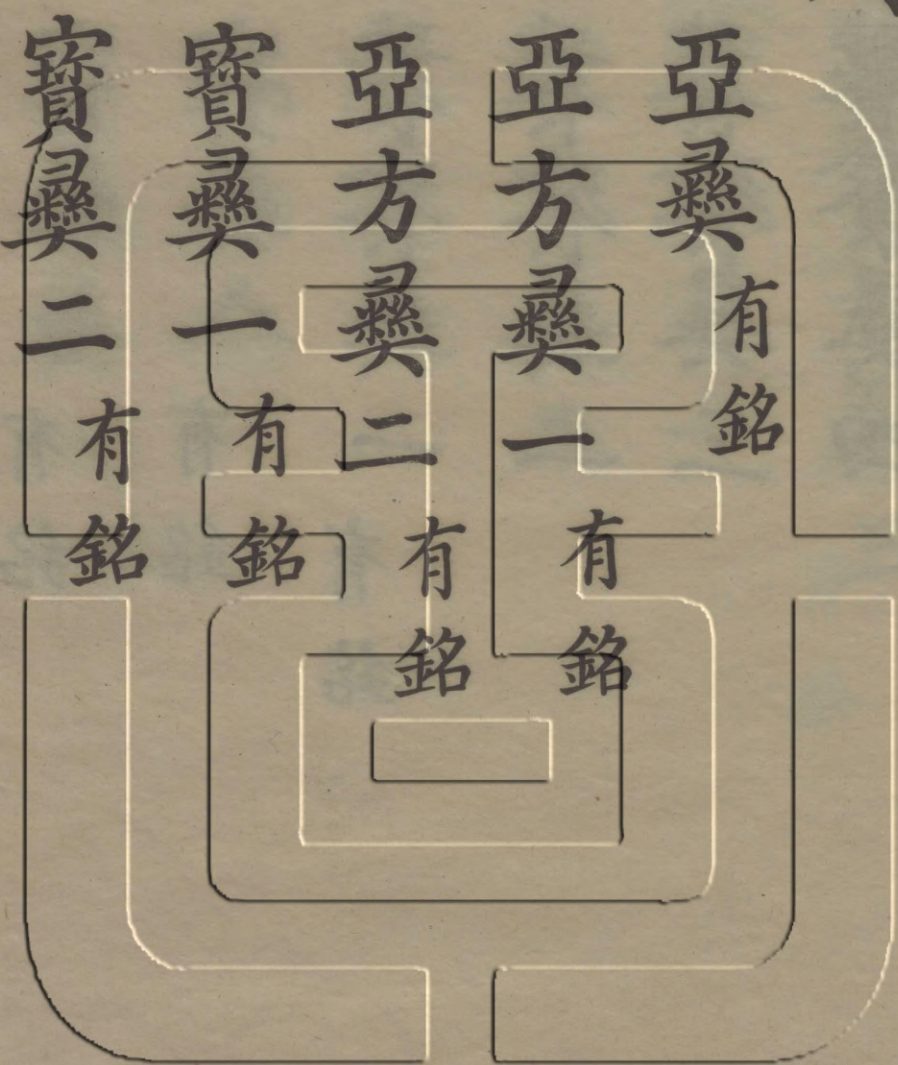 亞彝有銘
亞方彝一有銘
亞方彝二有銘
寶彝一有銘
寶彝二有銘